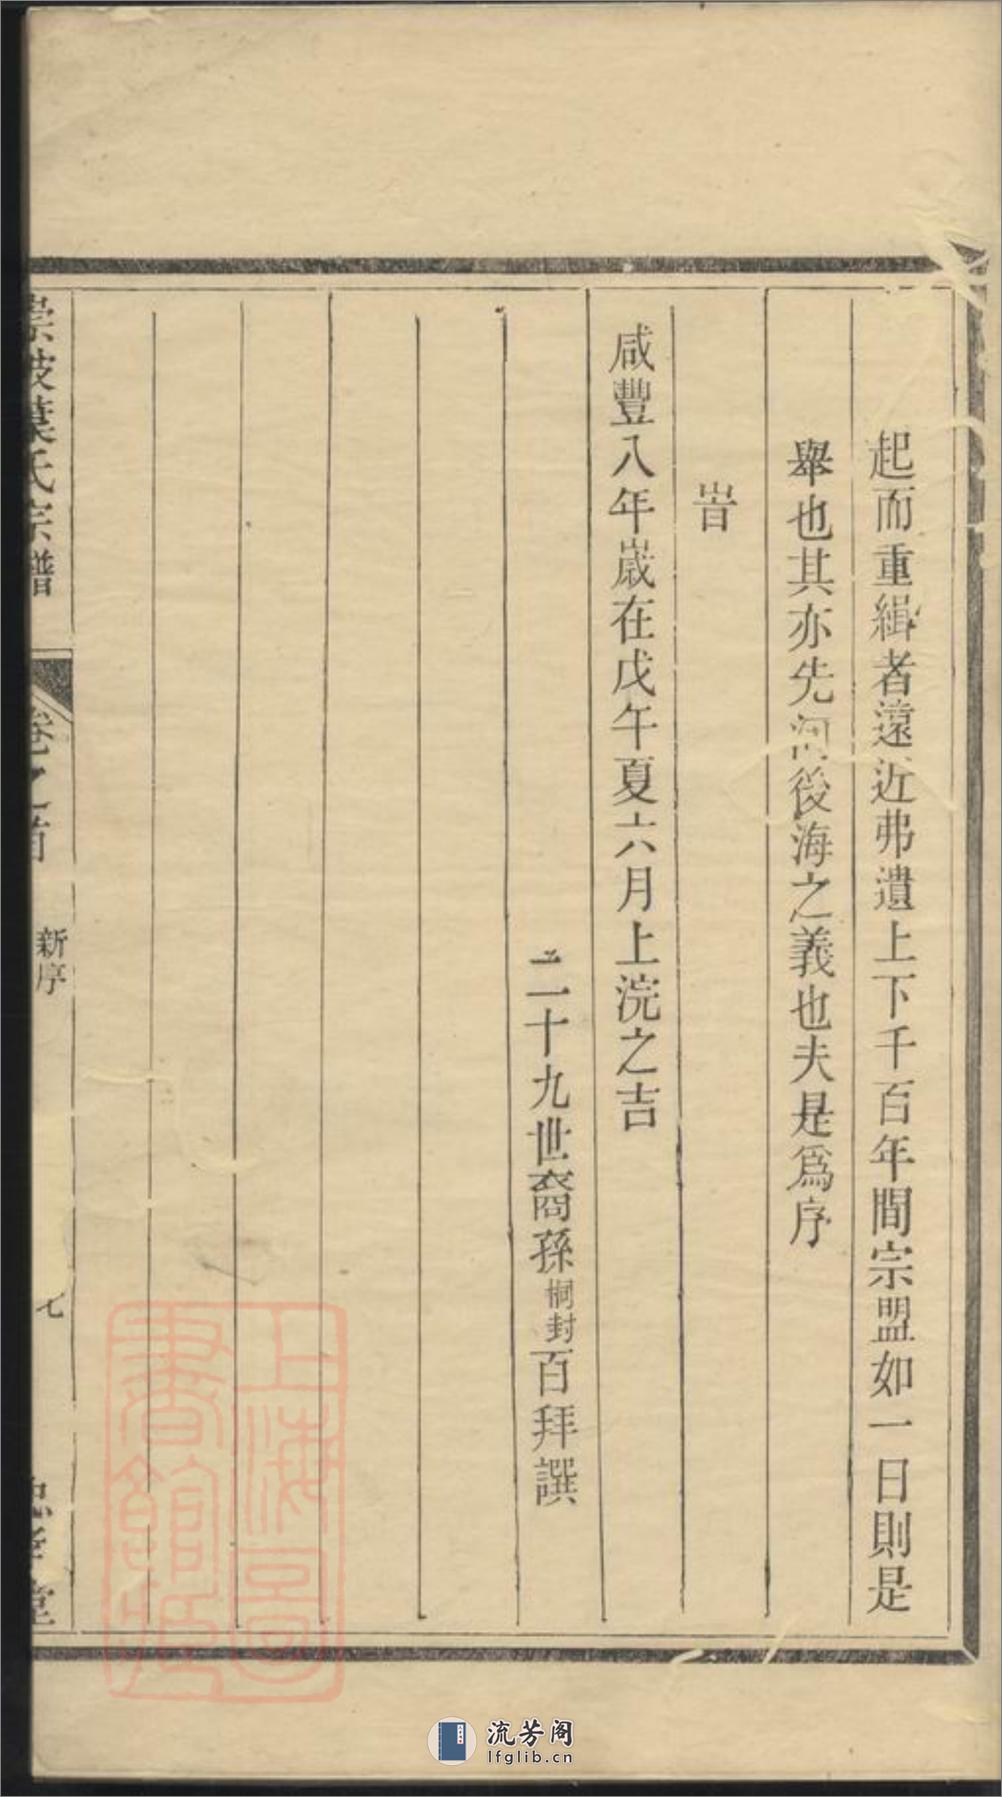 起而重緝者遠近弗遺上下千百年間宗盟如一日則是
舉也其亦先河後海之義也夫是爲序
旹
咸豐八年歲在戊午夏六月上浣之吉
二十九世裔孫桐封百拜譔
葉氏宗譜
卷之首
新序
七
堂
上海圖
書館藏
流芳阁
lfglib.cn